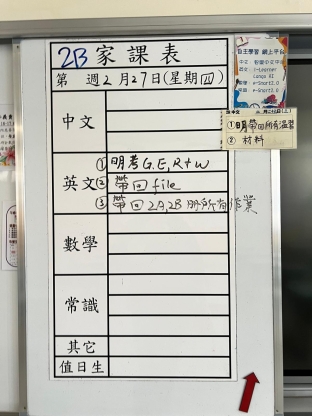 2B家課表
第 週2月27日(星期四)
中文
英文
①明考G.E, R+W
②帶回file
③帶回2A,2B冊所有作業
數學
常識
其它
值日生
自主學習 網上平台
①明帶回所有溫習
② 材料